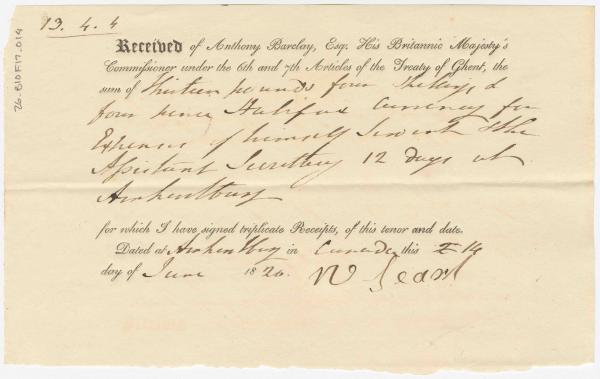 13. 4. 4
26-B10F17-014
Received of Anthony Barclay, Esq. His Britannic Majesty's
Commissioner under the 6th and 7th Articles of the Treaty of Ghent, the
sum of Thirteen pounds four Shillgs, &
four pence Halifax Currency for
Expenses of himself Servant & the
Assistant Secretary 12 days at
Amherstburg
for which I have signed triplicate Receipts, of this tenor and date.
Dated at Amherstburg in Canada this 14
day of June 1820.